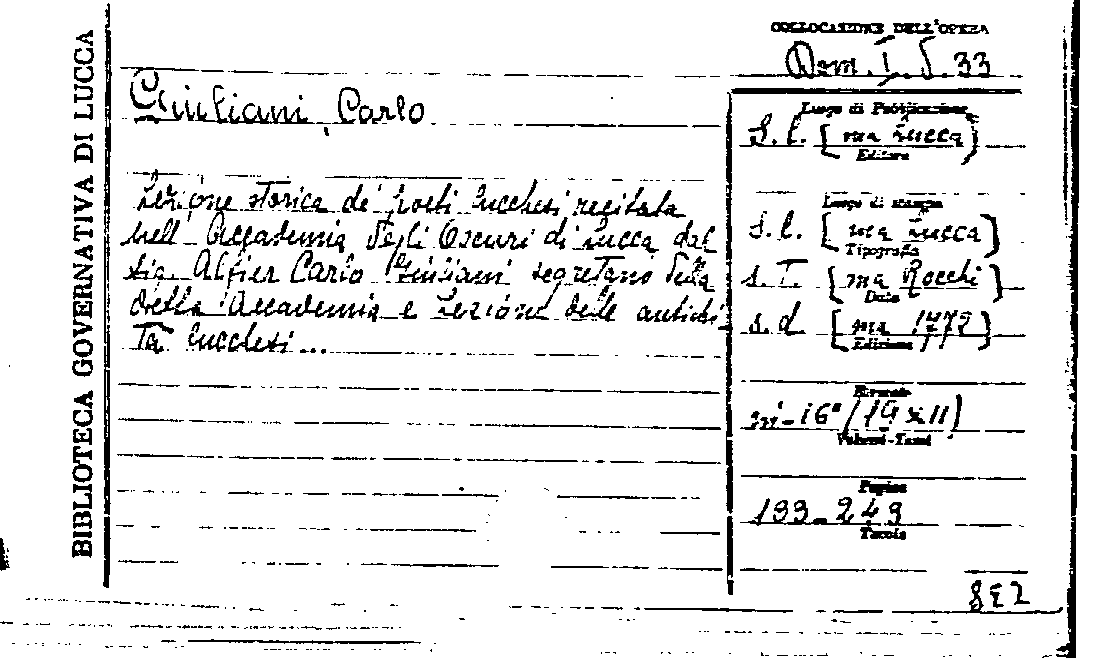 BIBLIOTECA GOVERNATIVA DI LUCCA
COLLOCAZIONE DELL'OPERA
Dom. I. 5. 33
Giuliani, Carlo
Lezione storica di poeti lucchesi recitata
nell'Accademia degli Oscuri di Lucca dal
sig. Alfier Carlo Giuliani segretario della
detta Accademia e Lezione delle antichi-
tà lucchesi...
Luogo di Pubblicazione
S. l. [ma Lucca]
Editore
Luogo di stampa
s. l. [ma Lucca]
Tipografia
s. T. [ma Rocchi]
Data
s. d. [ma 1772]
Edizione
Formato
in-16° (19x11)
Volumi-Tomi
Pagine
193-249
Tavole